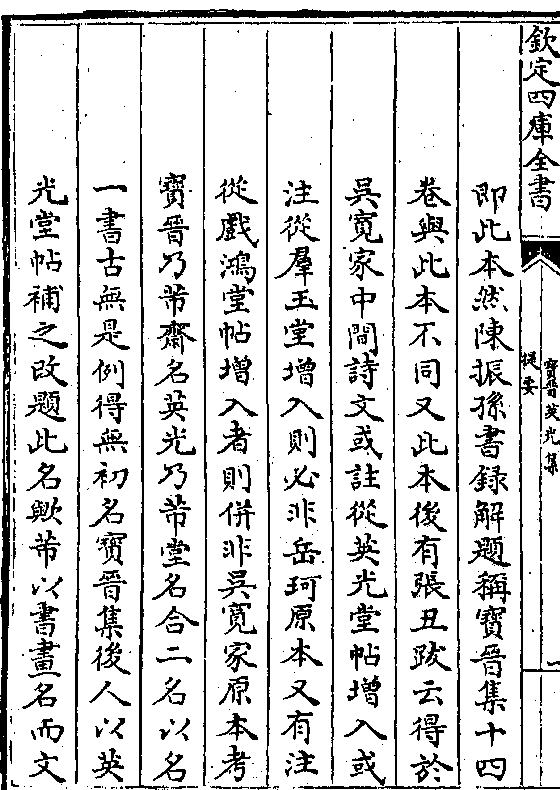 欽定四庫全書
寶晉英光集
提要
即此本然陳振孫書録解題稱寶晉集十四
卷與此本不同又此本後有張丑跋云得於
吳寛家中間詩文或註從英光堂帖增入或
注從羣玉堂增入則必非岳珂原本又有注
從戲鴻堂帖增入者則併非吳寛家原本考
寶晉乃芾齋名英光乃芾堂名合二名以名
一書古無是例得無初名寶晉集後人以英
光堂帖補之改題此名歟芾以書畫名而文